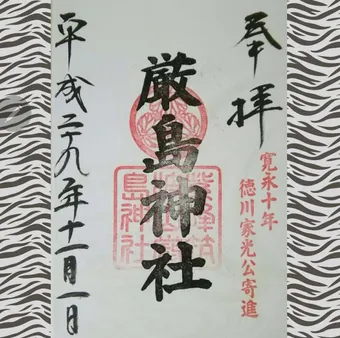 奉拝
寛永十年
徳川家光公寄進
厳島神社
平成二十九年十一月一日